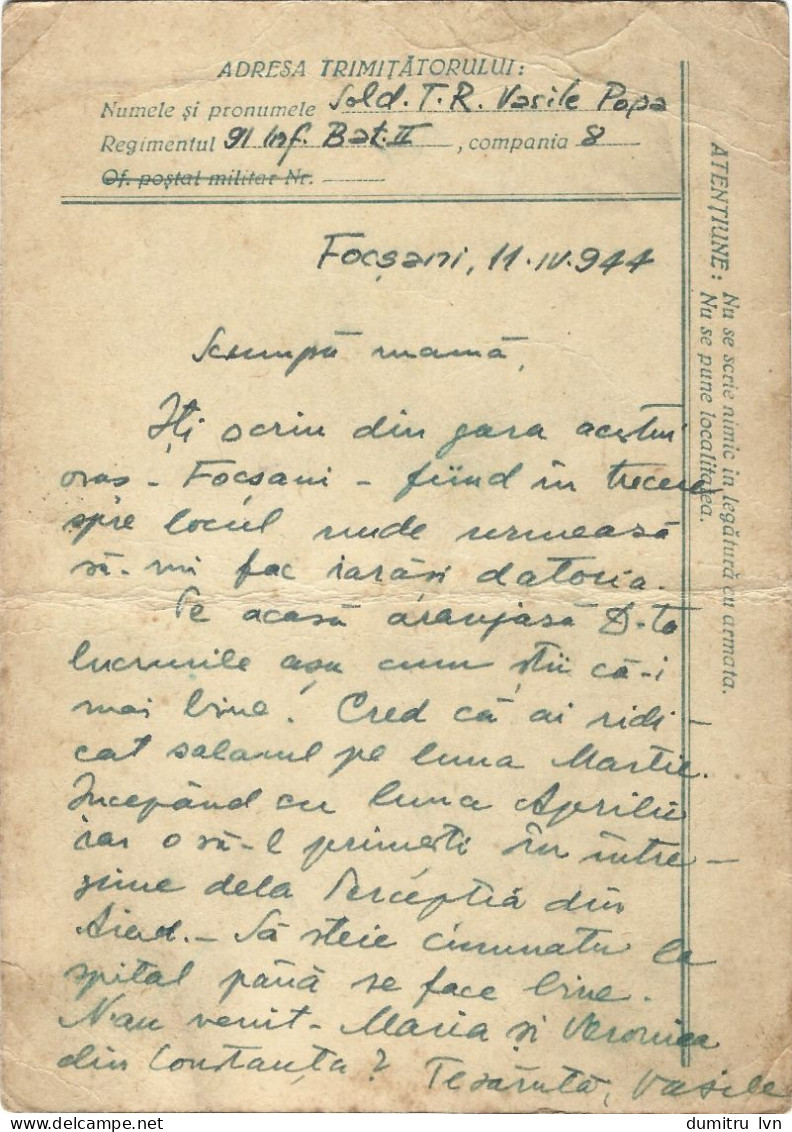 ADRESA TRIMIȚĂTORULUI:
Numele și pronumele Sold. T. R. Vasile Popa
Regimentul 91 Inf. Bat. II, compania 8
Of. poștal militar Nr.
ATENȚIUNE: Nu se scrie nimic in legătură cu armata.
Nu se pune localitatea.
Focșani, 11.IV.944
Scumpă mamă,
Iți scriu din gara acestui
oraș - Focșani - fiind în trecere
spre locul unde urmează
să-mi fac iarăși datoria.
Pe acasă aranjază D-ta
lucrurile așa cum știi că-i
mai bine. Cred că ai ridi-
cat salarul pe luna Martie.
Incepând cu luna Aprilie
iar o să-l primești în intre-
gime dela Percepția din
Aiud. - Să steie cumnatu la
spital până se face bine.
N-au venit - Maria și Veronica
din Constanța? Te sărută, Vasile
dumitru lvn